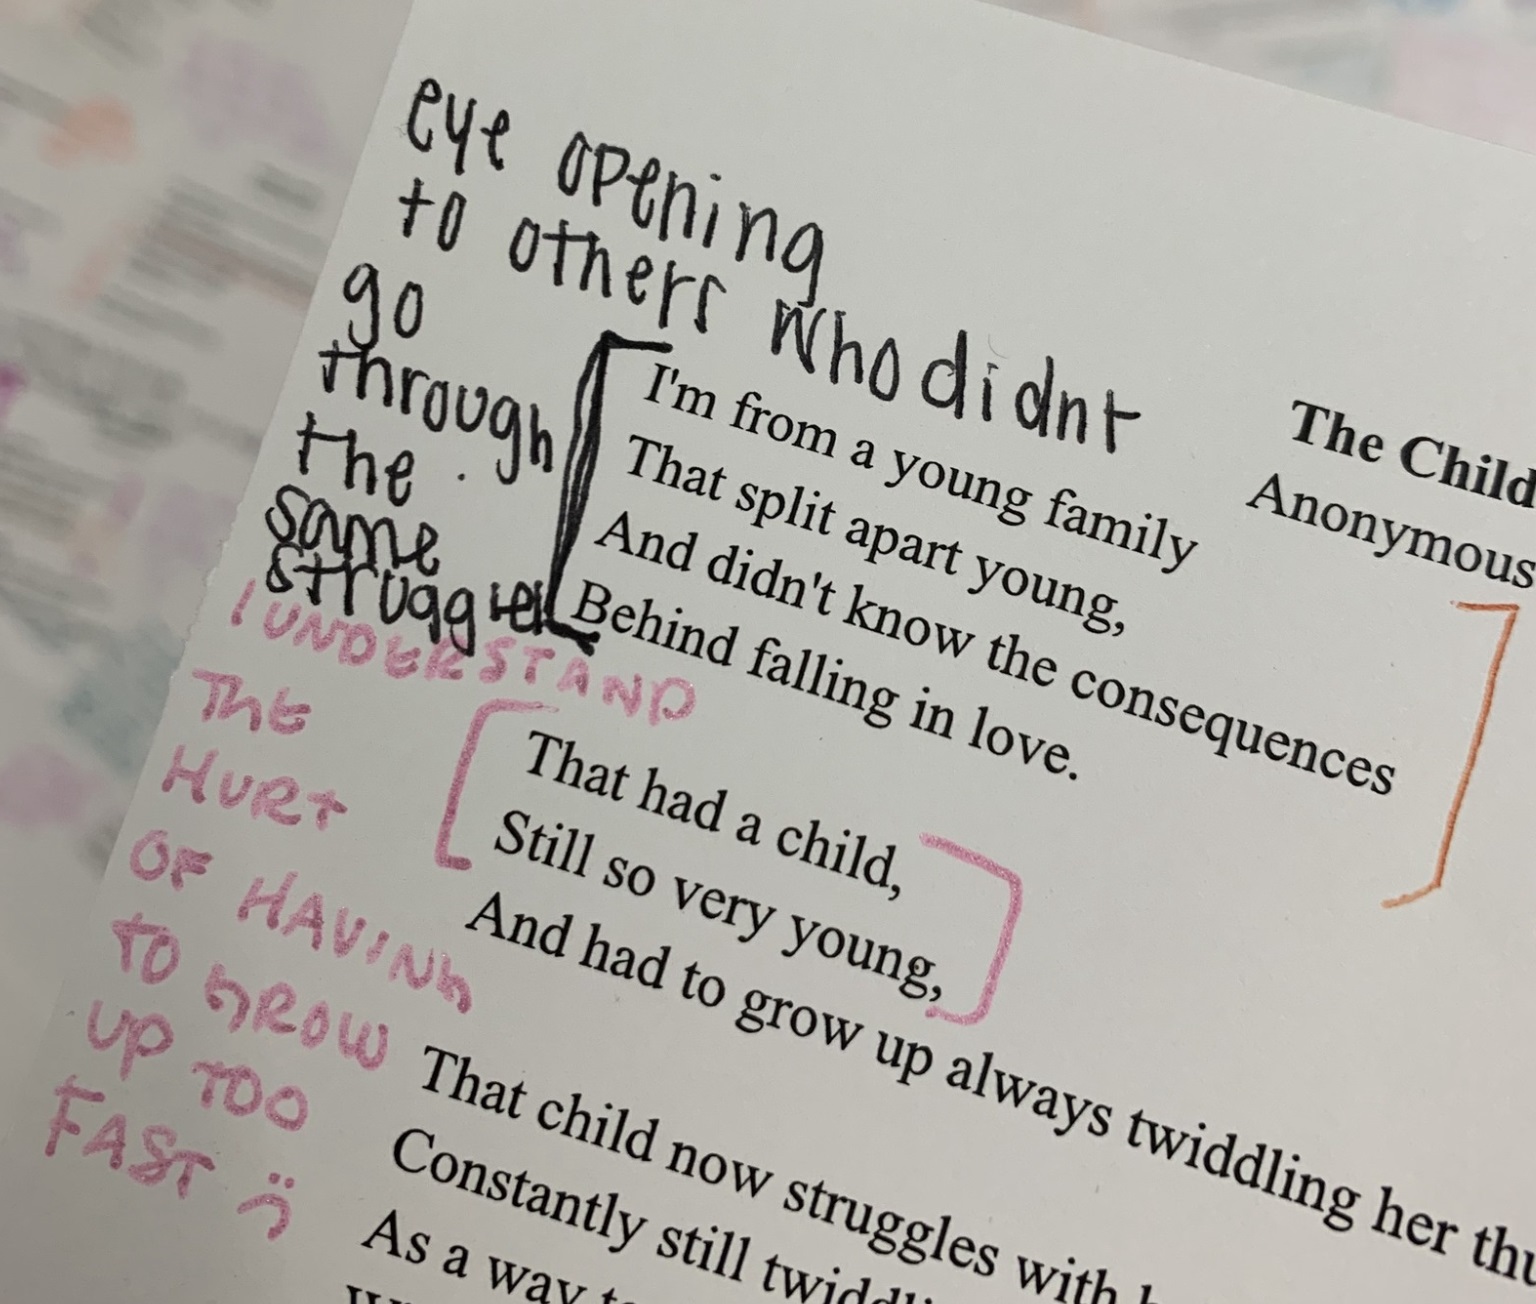 eye opening
to others who didnt
go
through
the
same
struggles
The Child
Anonymous
I'm from a young family
That split apart young,
And didn't know the consequences
Behind falling in love.
I UNDERSTAND
THE
HURT
OF HAVING
TO GROW
UP TOO
FAST
That had a child,
Still so very young,
And had to grow up always twiddling her
That child now struggles with
Constantly still
As a way